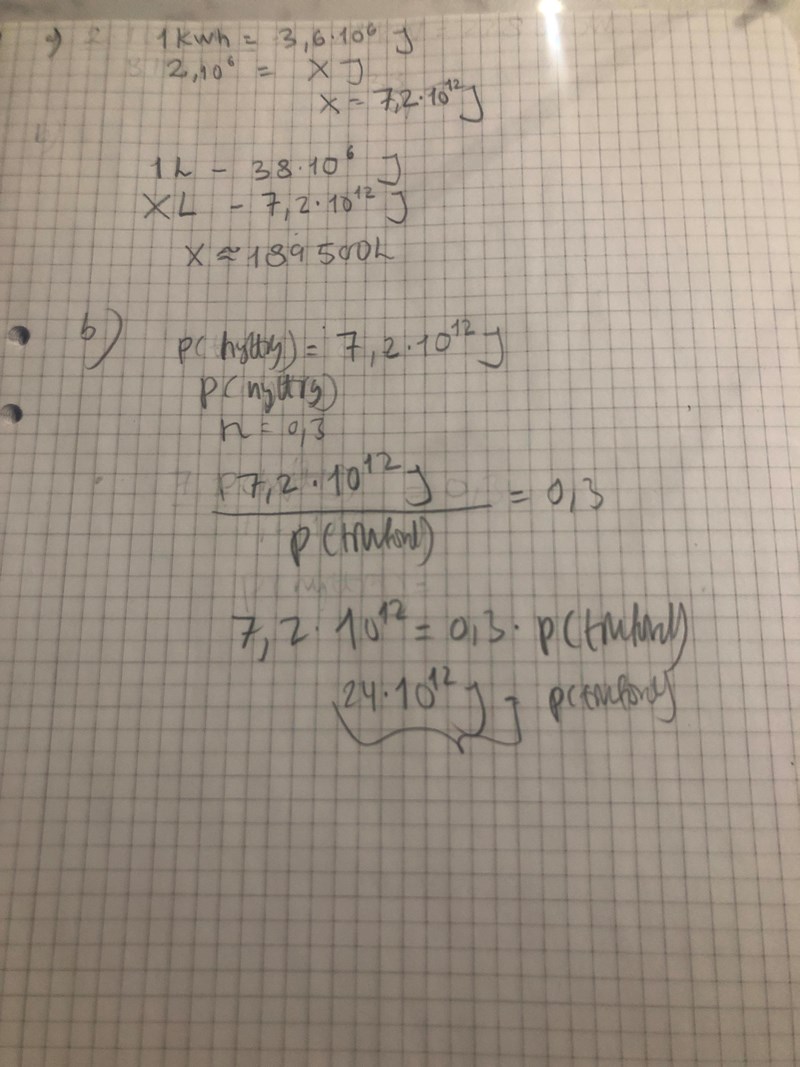 a) 1 kwh = 3,6·10⁶ J
2,10⁶ = X J
X = 7,2·10¹² J
1L - 38·10⁶ J
XL - 7,2·10¹² J
X ≈ 189 500L
b) P(nyttig) = 7,2·10¹² J
P(nyttig)
n = 0,3
7,2·10¹² J
= 0,3
P(tillförd)
7,2·10¹² = 0,3·P(tillförd)
24·10¹² J = P(tillförd)